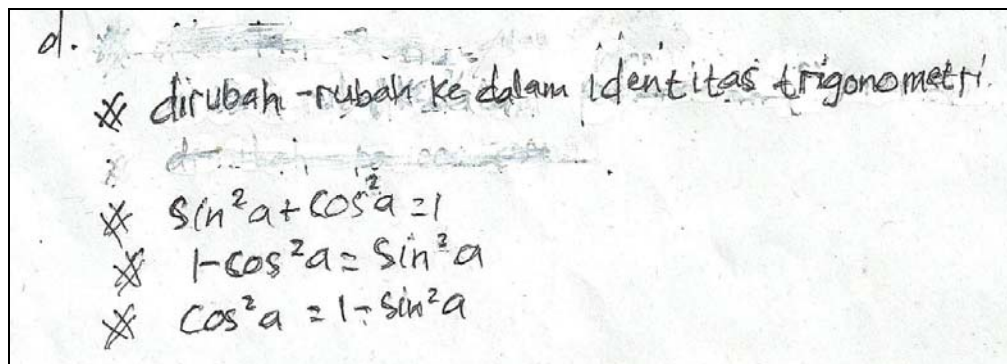 d.
※ dirubah-rubah ke dalam identitas trigonometri.
※ sin²a + cos²a = 1
※ 1-cos²a = sin²a
※ cos²a = 1-sin²a